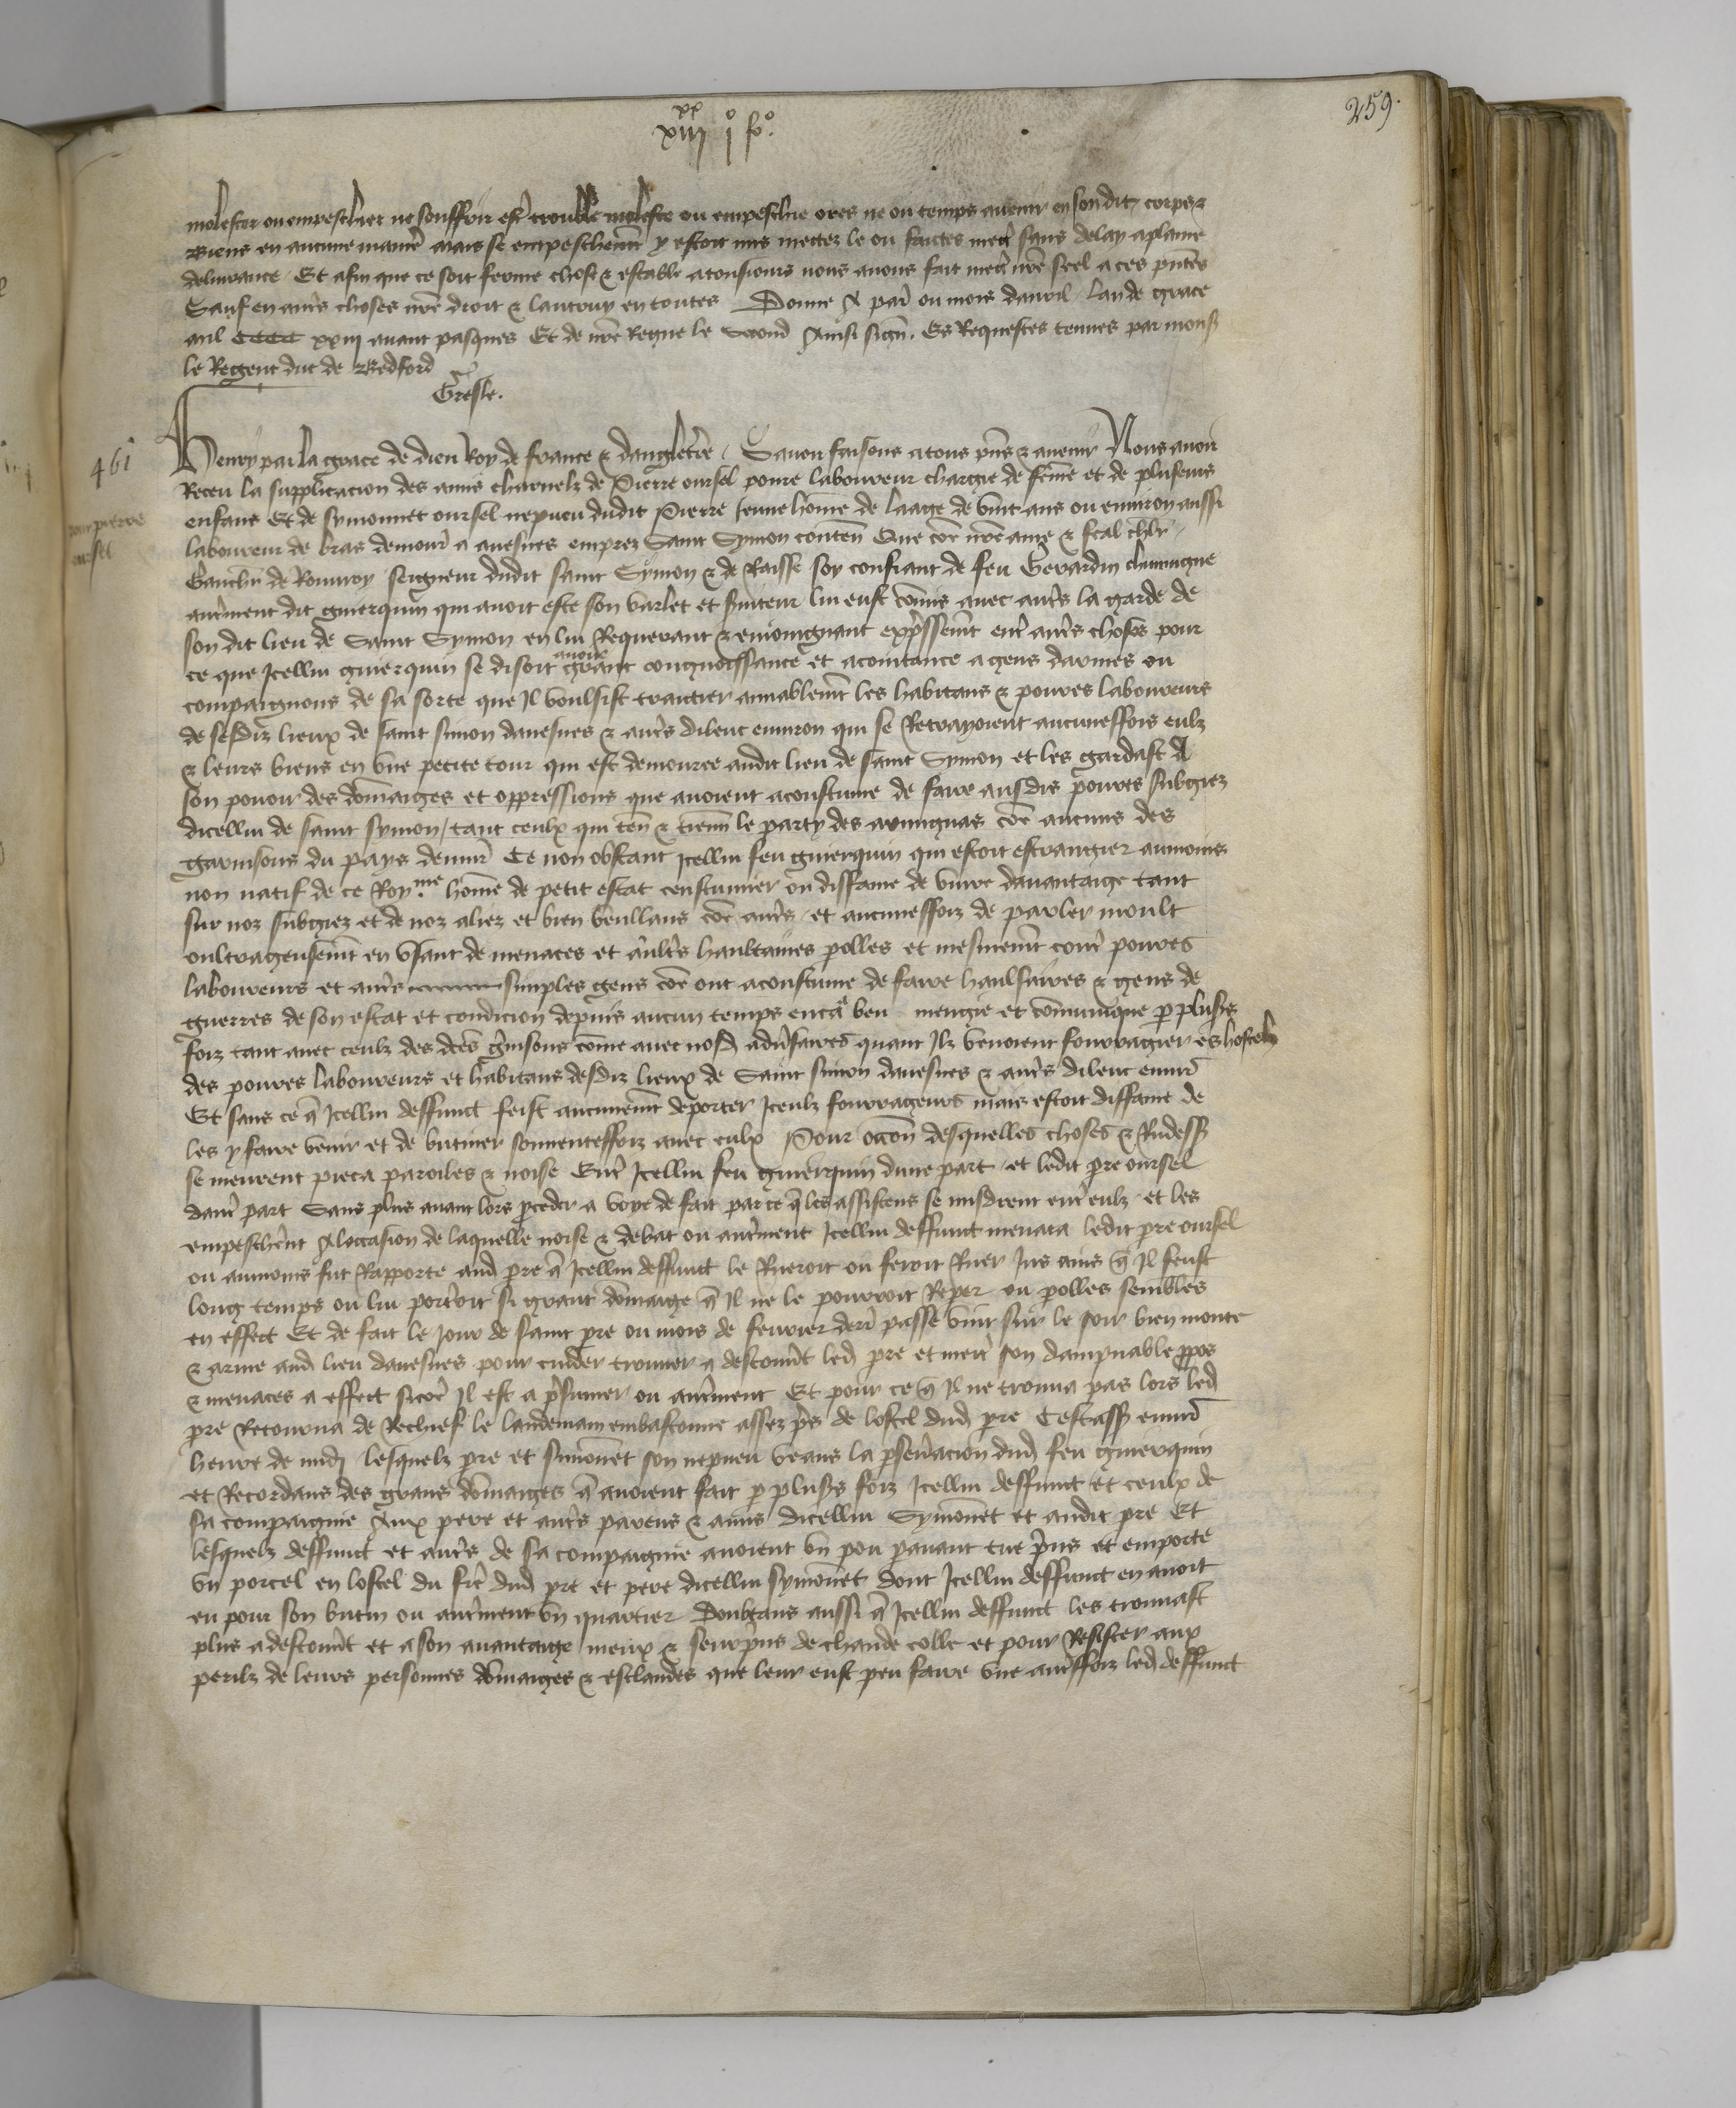 259.
xiii xx i o fo.
molester ou empescher ne souffrir estre trouble moleste ou empeschie ores ne ou temps avenir en son dit corps &
Biens en aucune maniere mais se empeschement y estoit mis mettez le ou faictes mectre sans delay a plaine
delivrance Et afin que ce soit ferme chose & estable a tousiours nous avons fait mectre nre seel a ces pntes
Sauf en autres choses nre droit & lautruy en toutes Donne A paris ou mois davril lan de grace
mil CCCC xxiii avant pasques Et de nre Regne le Second Ainsi signe. Es Requestes tenues par monss
le Regent duc de Bedford
Gresle.
461
pour pierre
oursel
Henry par la grace de dieu Roy de france & dangleterre Savoir faisons a tous pns & avenir Nous avoir
Receu la supplicacion des amis charnelz de Pierre oursel povre laboureur chargie de femme et de pluseurs
enfans Et de symonnet oursel nepveu dudit Pierre jeune homme de laage de vint ans ou environ aussi
laboureur de bras demourans a avesnes emprez Saint Symon contenant Que come nre ame & feal chlr
Gauchier de Rouvroy seigneur dudit saint Symon & de Raisse soy confiant de feu Gerardin
autrement dit guierquin qui avoit este son varlet et serviteur lui eust commis avec autres la garde de
son dit lieu de Saint Symon en lui Requerant & enioingnant expressement entre autres choses pour
ce que Icellui guierquin se disoit avoir grant congnoissance et acointance a gens darmes ou
compaignons de sa sorte que Il voulsist traictier amiablement les habitans & povres laboureurs
de sesdiz lieux de saint simon davesnes & autres dilenc environ qui se Retrayoient aucuneffois eulz
& leurs biens en une petite tour qui est demouree audit lieu de saint Symon et les gardast A
son povoir des dommaiges et oppressions que avoient acoustume de faire ausdis povres subgiez
dicellui de saint symon tant ceulx qui ten & tienn le party des armignas come aucuns des
garnisons du pays denvir Ce non obstant Icellui feu guierquin qui estoit estrangier aumoins
non natif de ce Roy.me homme de petit estat coustumier ou diffame de vivre davantaige tant
sur noz subgiez et de noz aliez et bien veullans come autres et aucuneffoiz de parler moult
oultrageusement en usant de menaces et aultres haultaines polles et mesmement contre povres
laboureurs et autres simples gens come ont acoustume de faire haulsaires & gens de
guerres de son estat et condicion depuis aucun temps enca beu mengie et communique p pluss
foiz tant avec ceulz des dces gnisons comme avec nosd adversaires quant Ilz venoient fourragier es hostelz
des povres laboureurs et habitans desdiz lieux de Saint simon davesnes & autres dilenc envir
Et sans ce q Icellui deffunct feist aucunement deporter Iceulz fourrageurs mais estoit diffame de
les y faire venir et de butiner souventeffoiz avec eulx Pour occon desquelles choses & Rudess
se meurent pieca parolles & noise Entre Icellui feu guierquin dune part et ledit pre oursel
dautre part Sans plus avant lors pceder a voye de fait parce q les assistens se misdrent entre eulz et les
empeschent A loccasion de laquelle noise & debat ou autrement Icellui deffunct menaca ledit pre oursel
ou aumoins fut Rapporte aud pre q Icellui deffunct le Rueroit ou feroit Ruer Jus ains q Il feust
long temps ou lui porteroit si grant dommaige q Il ne le pourroit Reper ou polles semblles
en effect Et de fait le Jour de saint pre ou mois de fevrier derr passe vint sur le soir bien monte
& arme aud lieu davesnes pour cuider trouver a descouvert led pre et mectre son dampnable ppos
& menaces a effect sicome Il est a presumer ou autrement Et pour ce q Il ne trouva pas lors led
pre Retourna de Rechief le landemain embastonne assez pres de lostel dud pre Cestass envir
heure de midi lesquelz pre et simonnet son nepveu veans la pservacion dud feu guierquin
et Recordans des grans dommaiges q avoient fait p pluss foiz Icellui deffunct et ceulx de
sa compaignie Aux pere et autres parens & amis dicellui Symonnet et audit pre Et
lesquelz deffunct et autres de sa compaignie avoient un pou paravant tue prins et emporte
un porcel en lostel du frere dud pre et pere dicellui symonnet dont Icellui deffunct en avoit
eu pour son butin ou autrement un quartier Doubtans aussi q Icellui deffunct les trouvast
plus a descouvert et a son avantaige meux & seurpns de chaude colle et pour Resister aux
perilz de leurs personnes dommaiges & esclandes que leur eust peu faire une autreffoiz led deffunct